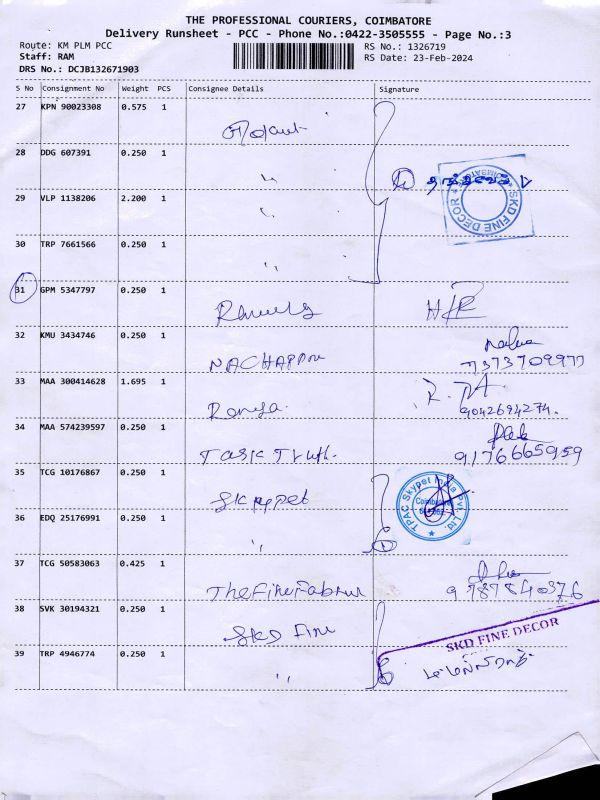 THE PROFESSIONAL COURIERS, COIMBATORE
Delivery Runsheet - PCC - Phone No.:0422-3505555 - Page No.:3
Route: KM PLM PCC RS No.: 1326719
Staff: RAM RS Date: 23-Feb-2024
DRS No.: DCJB132671903
S No Consignment No Weight PCS Consignee Details Signature
27 KPN 90023308 0.575 1
28 DDG 607391 0.250 1 "
29 VLP 1138206 2.200 1 "
SKD FINE DECOR
COIMBATORE
30 TRP 7661566 0.250 1 "
31 GPM 5347797 0.250 1
32 KMU 3434746 0.250 1
33 MAA 300414628 1.695 1 Ramya.
9042694274.
34 MAA 574239597 0.250 1 Task Truth.
9176665959
35 TCG 10176867 0.250 1 Skypet
TPAC Skypet India Pvt. Ltd.
Coimbatore
36 EDQ 25176991 0.250 1 "
37 TCG 50583063 0.425 1
9787840376
38 SVK 30194321 0.250 1 SKD Fine
SKD FINE DECOR
39 TRP 4946774 0.250 1 "